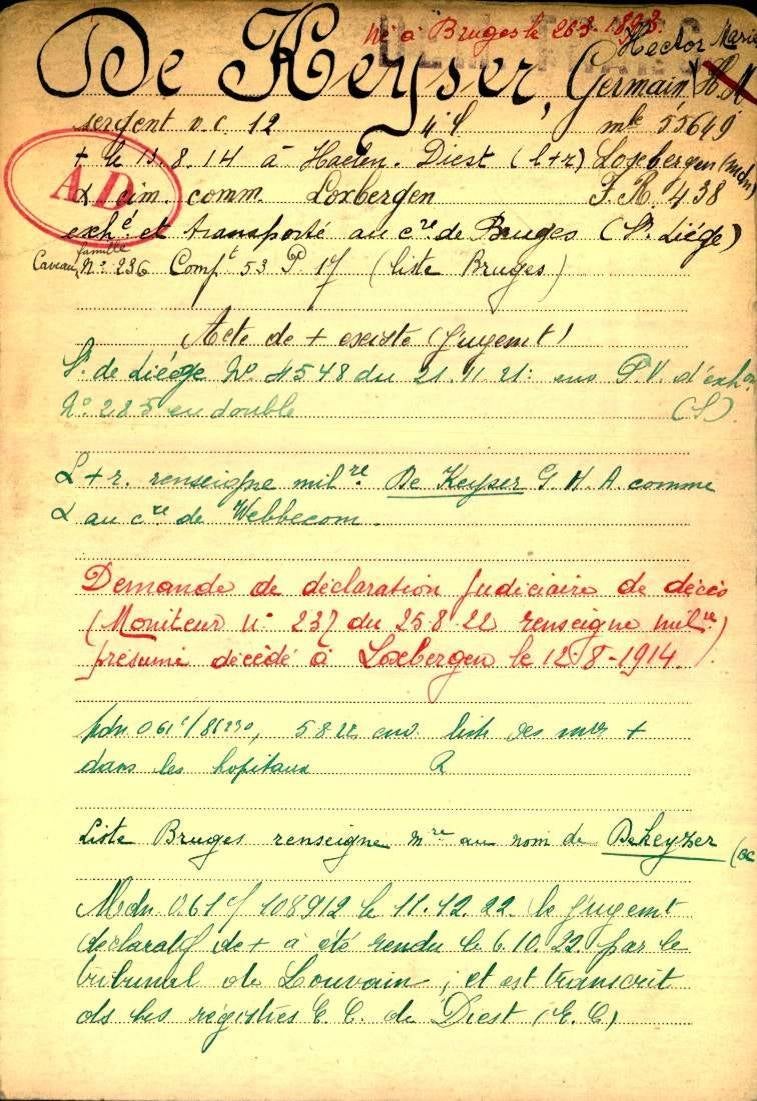 né à Bruges le 26.3.1893.
De Keyser, Germain Hector Marie
sergent v.c. 12 4 l mle 55649
+ le 13.8.14 à Haelen. Diest (l+r) Loxbergen (mdn)
AD
cim. comm. Loxbergen F.R. 438
exhé et transporté au cre de Bruges (S. Liége)
Caveau famille No 236 Compt 53 P 17 (liste Bruges)
Acte de + existe (jugemt)
S. de Liége No 4548 du 21.11.21: P.V. d'exhon
No 285 en double (S).
L+r. renseigne milre De Keyser G. H. A. comme
au cre de Webbecom.
Demande de déclaration judiciaire de décès
(Moniteur no 237 du 25-8-22 renseigne milre)
présumé décédé à Loxbergen le 12-8-1914.
5 8 22 liste des +
dans les hopitaux R
Liste Bruges renseigne mre au nom de Dekeyzer
Mdn 061 108912 le 11.12.22. le jugemt
déclaratif de + a été rendu le 6.10.22. par le
tribunal de Louvain, et est transcrit
ds les régistres E. C. de Diest (E.C)